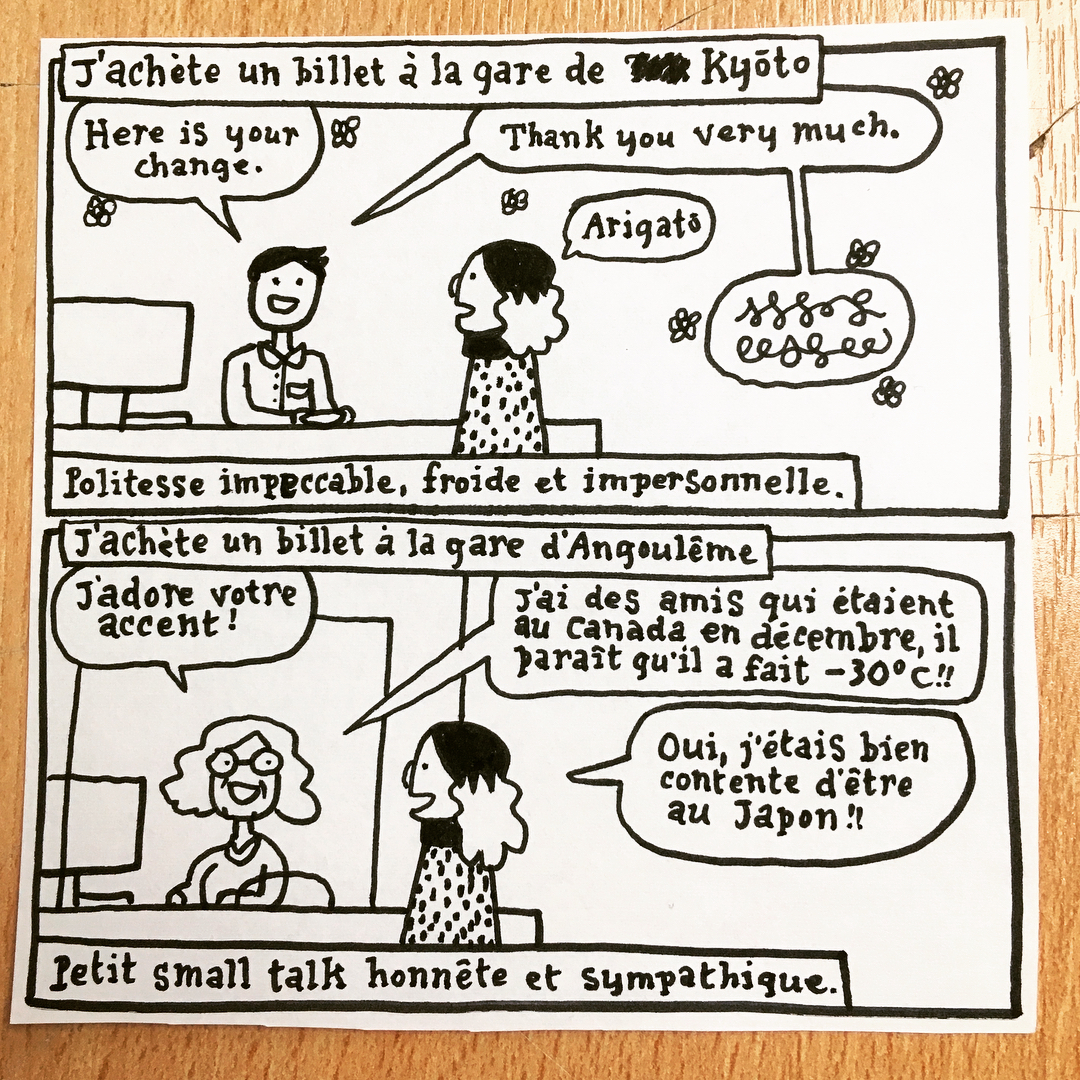 J'achète un billet à la gare de Kyōto
Here is your
change.
Thank you very much.
Arigatō
Politesse impeccable, froide et impersonnelle.
J'achète un billet à la gare d'Angoulême
J'adore votre
accent!
J'ai des amis qui étaient
au Canada en décembre, il
paraît qu'il a fait -30°C!!
Oui, j'étais bien
contente d'être
au Japon!!
Petit small talk honnête et sympathique.